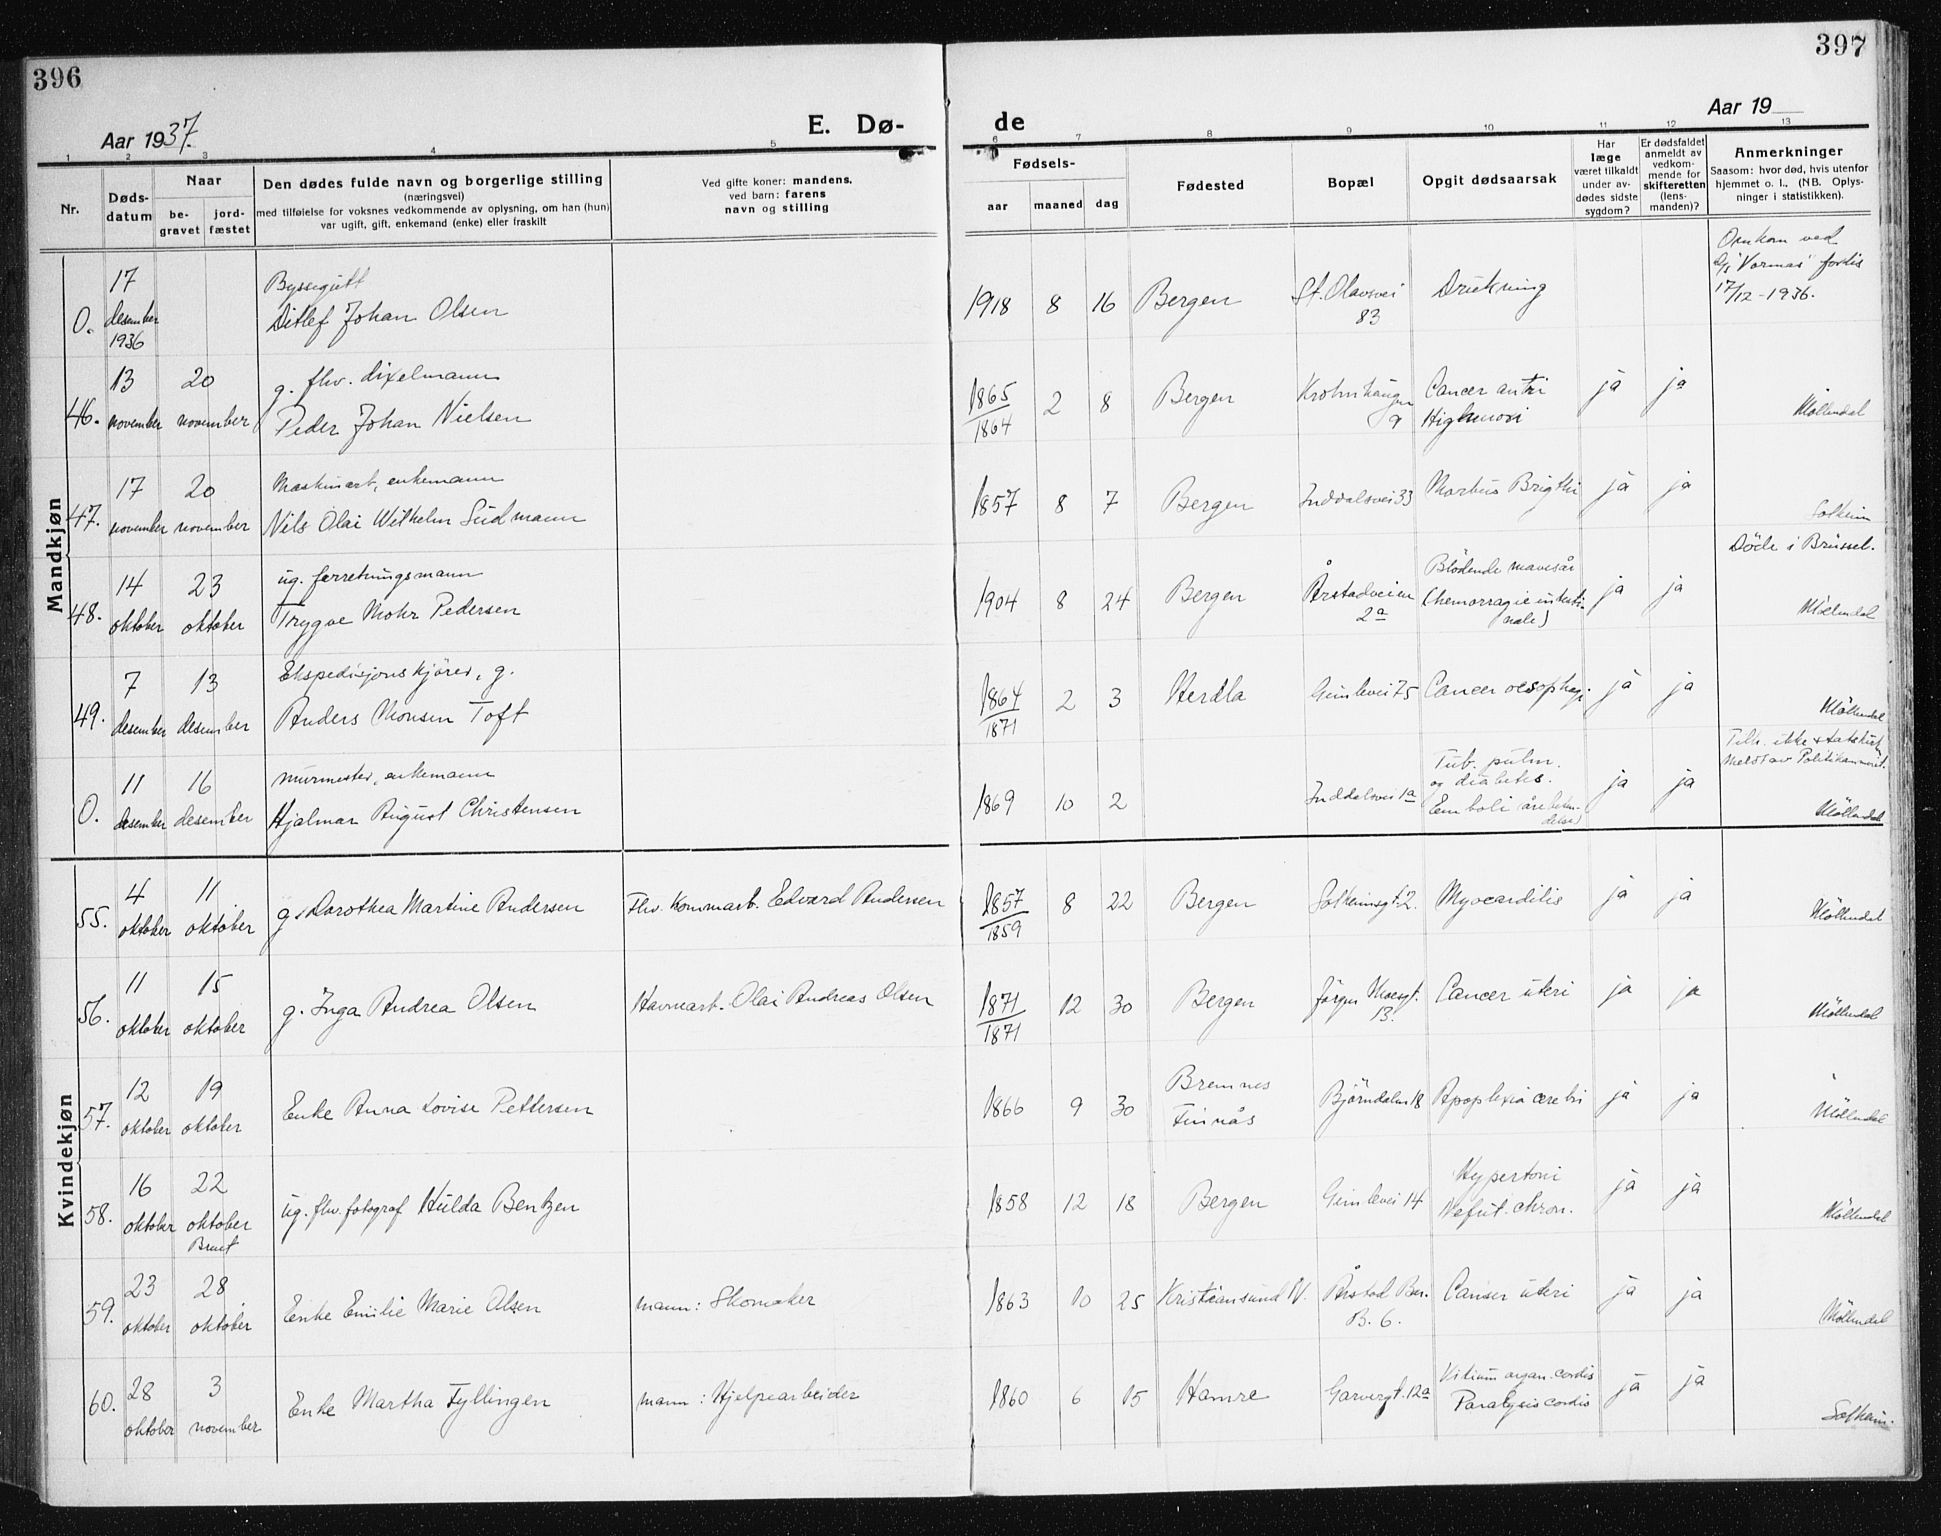 396
397
Aar 1937.
E. Dø-
de
Aar 19
1 2 3 4 5 6 7 8 9 10 11 12 13
Nr.
Døds-
datum
Naar
be-
gravet
jord-
fæstet
Den dødes fulde navn og borgerlige stilling
(næringsvei)
med tilføielse for voksnes vedkommende av oplysning, om han (hun)
var ugift, gift, enkemand (enke) eller fraskilt
Ved gifte koner: mandens,
ved barn: farens
navn og stilling
Fødsels-
aar maaned dag
Fødested
Bopæl
Opgit dødsaarsak
Har
læge
været tilkaldt
under av-
dødes sidste
sygdom?
Er dødsfaldet
anmeldt av
vedkom-
mende for
skifteretten
(lens-
manden)?
Anmerkninger
Saasom: hvor død, hvis utenfor
hjemmet o. l., (NB. Oplys-
ninger i statistikken).
Mandkjøn
0.
17
desember
1936
Byssegutt
Ditlef Johan Olsen
1918 8 16
Bergen
St. Olavsvei
83
Drukning
Omkom ved
D/S "Vormas" forlis
17/12-1936.
46.
13 20
november november
g. fhv.
Peder Johan Nielsen
1865
1864
2 8
Bergen
Krohnhaugen
9
Cancer antri
Highmori
ja ja
Möllendal
47.
17 20
november november
Maskinarb., enkemann
Nils Olai Wilhelm Südmann
1857 8 7
Bergen
Inddalsvei 33
Morbus Brigthi
ja ja
Solheim
48.
14 23
oktober oktober
ug. forretningsmann
Trygve Mohr Pedersen
1904 8 24
Bergen
Årstadveien
2a
Blödende mavesår
(hemorragie intesti-
nale)
ja ja
Döde i Brüssel.
Möllendal
49.
7 13
desember desember
Ekspedisjonskjörer, g.
Anders Monsen Toft
1864
1871
2 3
Herdla
Gimlevei 75
Cancer oesophagi.
ja ja
Möllendal
0.
11 16
desember desember
murmester, enkemann
Hjalmar August Christensen
1869 10 2
Inddalsvei 1a
Tub. pulm.
og diabetes.
Emboli (årebeten-
delse)
ja ja
Tilh. ikke statskirken
Meldt av Politikammeret.
Möllendal
Kvindekjøn
55.
4 11
oktober oktober
g. Dorothea Martine Andersen
Fhv. Kommarb. Edvard Andersen
1857
1859
8 22
Bergen
Solheimsgt. 2.
Myocarditis
ja ja
Möllendal
56.
11 15
oktober oktober
g. Inga Andrea Olsen
Havnearb. Olai Andreas Olsen
1871
1871
12 30
Bergen
Jörgen Moesgt.
13.
Cancer uteri
ja ja
Möllendal
57.
12 19
oktober oktober
Enke Anna Lovise Pettersen
1866 9 30
Bremnes
Finnås
Björndalen 18
Apoplexia cerebri
ja ja
Möllendal
58.
16 22
oktober oktober
Brent
ug. fhv. fotograf Hulda Bentzen
1858 12 18
Bergen
Gimlevei 14
Hypertoni
Nefrit. chron.
ja ja
Möllendal
59.
23 28
oktober oktober
Enke Emilie Marie Olsen
mann: Skomaker
1863 10 25
Kristiansund N.
Årstad Ber.
B. 6.
Canser uteri
ja ja
Möllendal
60.
28 3
oktober november
Enke Martha Fyllingen
mann: Hjelpearbeider
1860 6 15
Hamre
Garvergt. 12a
Vitium organ. cordis
Paralysis cordis
ja ja
Solheim.